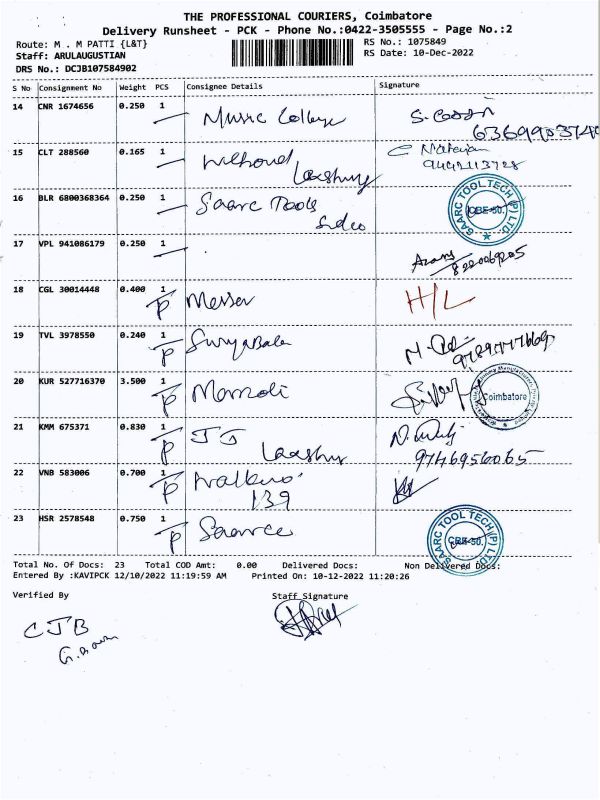 THE PROFESSIONAL COURIERS, Coimbatore
Delivery Runsheet - PCK - Phone No.:0422-3505555 - Page No.:2
Route: M . M PATTI {L&T}
RS No.: 1075849
Staff: ARULAUGUSTIAN
RS Date: 10-Dec-2022
DRS No.: DCJB107584902
S No Consignment No Weight PCS Consignee Details Signature
14 CNR 1674656 0.250 1 Music College
15 CLT 288560 0.165 1
9442113728
16 BLR 6800368364 0.250 1 Saarc Tools
Sidco
SAARC TOOL TECH (P) LTD.
CBE-50.
17 VPL 941086179 0.250 1
18 CGL 30014448 0.400 1 P Messer H/L
19 TVL 3978550 0.240 1 P SuryaBala
20 KUR 527716370 3.500 1 P
Coimbatore
21 KMM 675371 0.830 1 P
9746956065
22 VNB 583006 0.700 1 P
139
23 HSR 2578548 0.750 1 P
SAARC TOOL TECH (P) LTD.
CBE-50.
Total No. Of Docs: 23 Total COD Amt: 0.00 Delivered Docs: Non Delivered Docs:
Entered By :KAVIPCK 12/10/2022 11:19:59 AM Printed On: 10-12-2022 11:20:26
Verified By Staff Signature
CJB